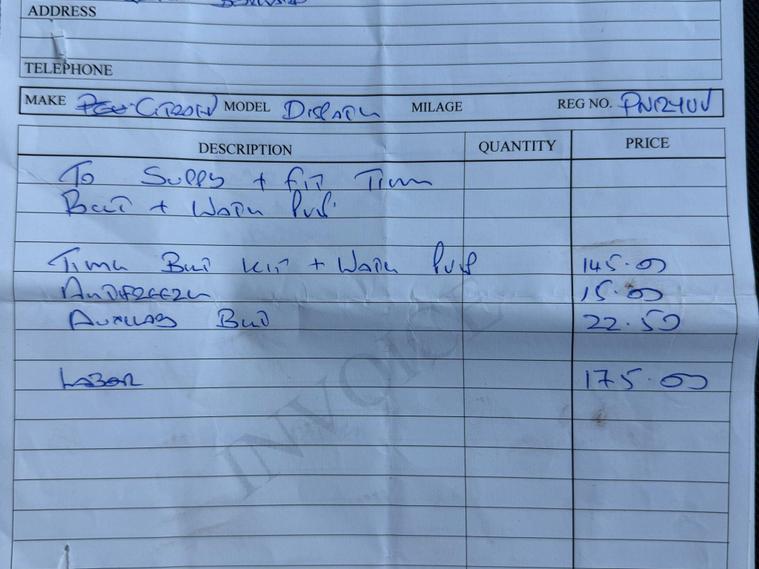 ADDRESS
TELEPHONE
MAKE Citroen MODEL Dispatch MILAGE REG NO.
DESCRIPTION QUANTITY PRICE
To Supply + Fit Timing
Belt + Water Pump
Timing Belt Kit + Water Pump 145.00
Antifreeze 15.00
Auxillary Belt 22.50
Labor 175.00
INVOICE